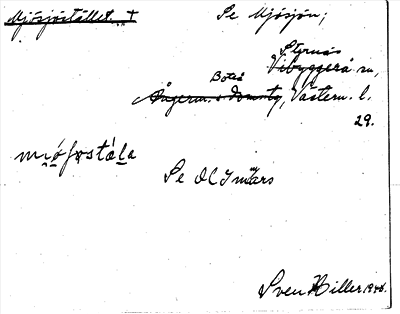 Mjösjöstället + Se Mjösjön;
Styrnäs
Vibyggerå sn,
Boteå
Ångerm. s. Domstg, Västern. l.
29.
mjófostála
Se OLI mars
Sven Hiller 1948.